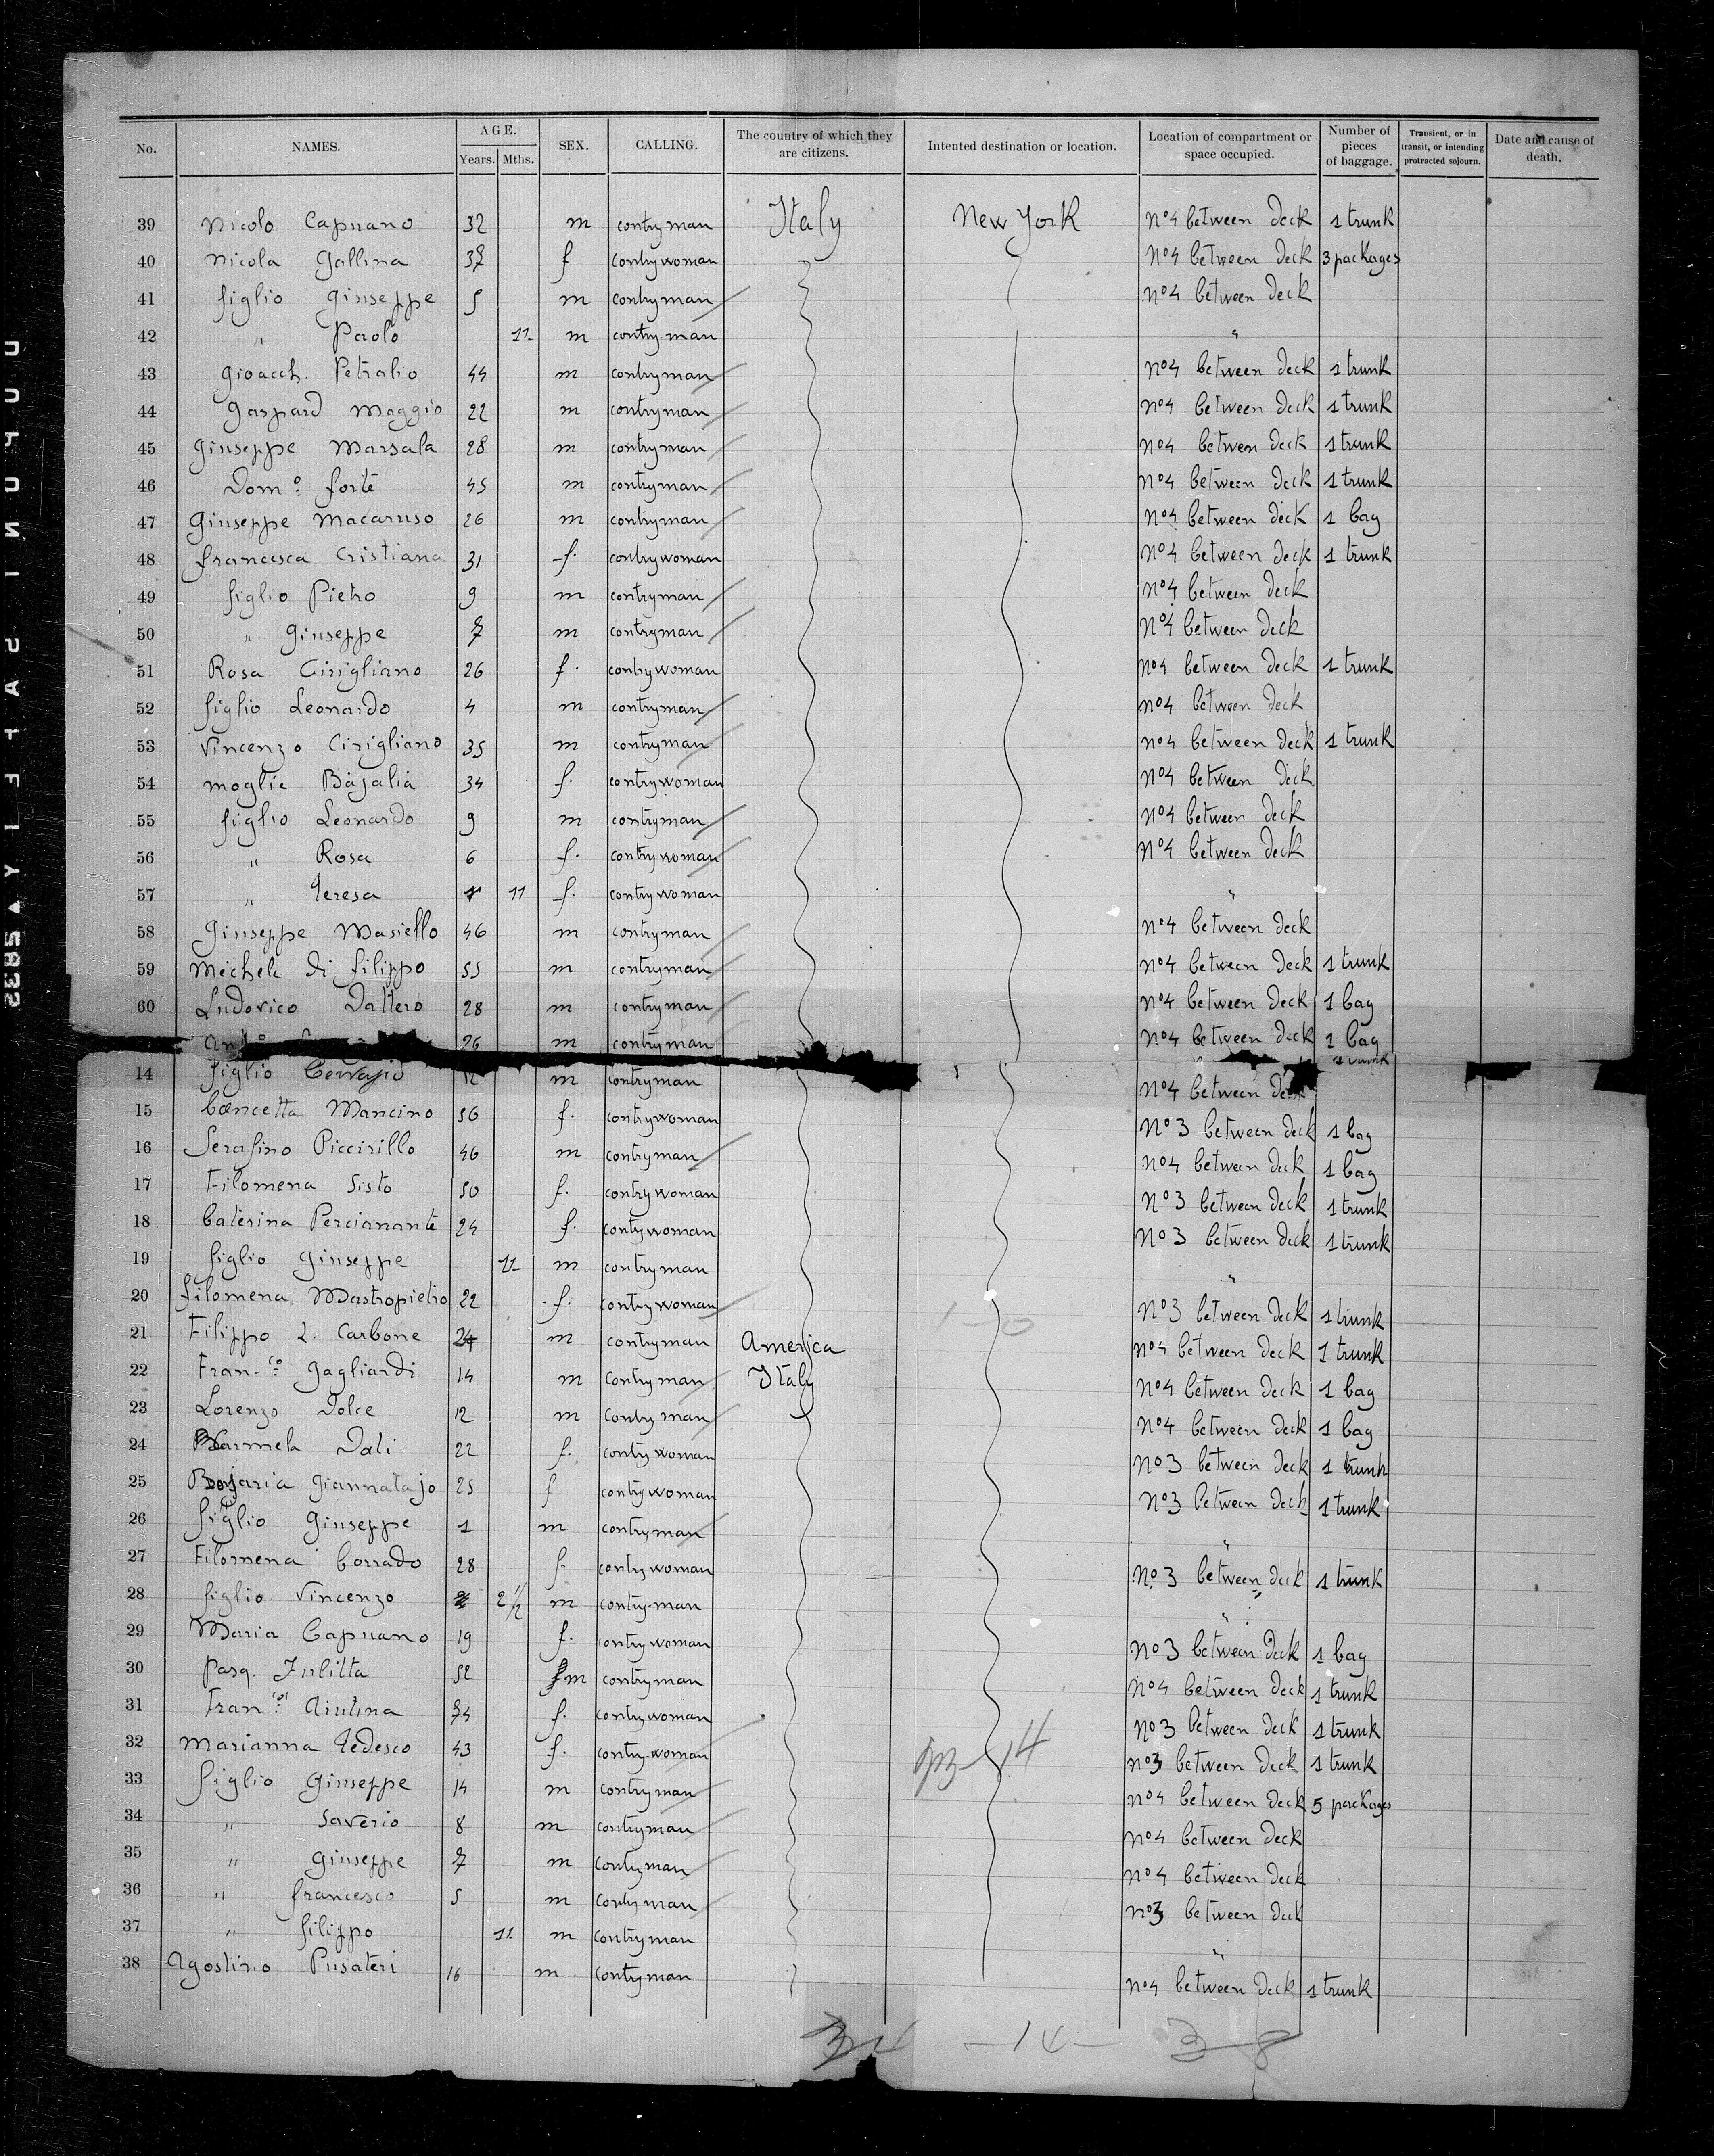 No. NAMES. AGE. Years. Mths. SEX. CALLING. The country of which they are citizens. Intented destination or location. Location of compartment or space occupied. Number of pieces of baggage. Transient, or in transit, or intending protracted sojourn. Date and cause of death.
39 Nicolo Capuano 32 m contryman Italy New York No4 between deck 1 trunk
40 Nicola Gallina 37 f contrywoman No4 between deck 3 packages
41 figlio Giuseppe 5 m contryman No4 between deck
42 " Paolo 11 m contryman "
43 Gioacch. Petralio 44 m contryman No4 between deck 1 trunk
44 Gaspard Maggio 22 m contryman No4 between deck 1 trunk
45 Giuseppe Marsala 28 m contryman No4 between deck 1 trunk
46 Domo. forte 45 m contryman No4 between deck 1 trunk
47 Giuseppe Macaruso 26 m contryman No4 between deck 1 bag
48 francesca Cristiana 31 f. contrywoman No4 between deck 1 trunk
49 figlio Pietro 9 m contryman No4 between deck
50 " Giuseppe 7 m contryman No4 between deck
51 Rosa Cirigliano 26 f. contrywoman No4 between deck 1 trunk
52 figlio Leonardo 4 m contryman No4 between deck
53 Vincenzo Cirigliano 35 m contryman No4 between deck 1 trunk
54 moglie Bajalia 34 f. contrywoman No4 between deck
55 figlio Leonardo 9 m contryman No4 between deck
56 " Rosa 6 f. contrywoman No4 between deck
57 " Teresa 11 f. contrywoman "
58 Giuseppe Masiello 46 m contryman No4 between deck
59 Michele di filippo 55 m contryman No4 between deck 1 trunk
60 Ludovico Daltero 28 m contryman No4 between deck 1 bag
26 m contryman No4 between deck 1 bag
14 figlio Gervasio 12 m contryman No4 between deck
15 Concetta Mancino 56 f. contrywoman No3 between deck 1 bag
16 Serafino Piccirillo 46 m contryman No4 between deck 1 bag
17 Filomena Sisto 50 f. contrywoman No3 between deck 1 trunk
18 Caterina Percianante 24 f. contrywoman No3 between deck 1 trunk
19 figlio Giuseppe 11 m contryman "
20 filomena Mastropietro 22 f. contrywoman No3 between deck 1 trunk
21 Filippo L. Carbone 24 m contryman America No4 between deck 1 trunk
22 Fran.co Gagliardi 14 m contryman Italy No4 between deck 1 bag
23 Lorenzo Dolce 12 m contryman No4 between deck 1 bag
24 Carmela Dali 22 f. contrywoman No3 between deck 1 trunk
25 Giannatajo 25 f contrywoman No3 between deck 1 trunk
26 figlio Giuseppe 1 m contryman "
27 Filomena Corrado 28 f. contrywoman No3 between deck 1 trunk
28 figlio Vincenzo 2 1/2 m contryman "
29 Maria Capuano 19 f. contrywoman No3 between deck 1 bag
30 Pasq. Julitta 52 m contryman No4 between deck 1 trunk
31 Fran.ca Aiutina 34 f. contrywoman No3 between deck 1 trunk
32 Marianna Tedesco 43 f. contrywoman 14 No3 between deck 1 trunk
33 figlio Giuseppe 14 m contryman No4 between deck 5 packages
34 " Saverio 8 m contryman No4 between deck
35 " Giuseppe 7 m contryman No4 between deck
36 " francesco 5 m contryman No3 between deck
37 " filippo 11 m contryman "
38 Agostino Pusateri 16 m contryman No4 between deck 1 trunk
-14-